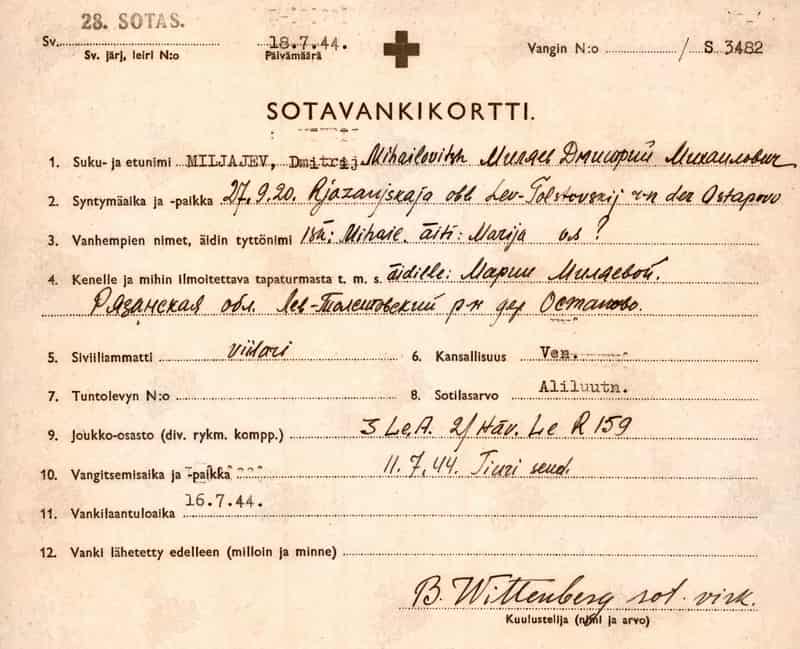 28. SOTAS.
Sv. 18.7.44. Vangin N:o / S 3482
Sv. järj, leiri N:o Päivämäärä
SOTAVANKIKORTTI.
1. Suku- ja etunimi MILJAJEV, Dmitrij Mihailovitsh Миляев Дмитрий Михаилович
2. Syntymäaika ja -paikka 27.9.20. Rjazanjskaja obl Lev-Tolstovskij r-n der Ostapovo
3. Vanhempien nimet, äidin tyttönimi Isä: Mihail. äiti: Marija o.s ?
4. Kenelle ja mihin ilmoitettava tapaturmasta t. m. s. äidille: Марии Миляевой.
Рязанская обл. Лев-Толстовский р-н дер Остапово.
5. Siviiliammatti viilari 6. Kansallisuus Ven.
7. Tuntolevyn N:o 8. Sotilasarvo Aliluutn.
9. Joukko-osasto (div. rykm. kompp.) 3 Le.A. 2/ Häv. Le R 159
10. Vangitsemisaika ja -paikka 11.7.44. Tiuri
11. Vankilaantuloaika 16.7.44.
12. Vanki lähetetty edelleen (milloin ja minne)
B. Wittenberg sot. virk.
Kuulustelija (nimi ja arvo)